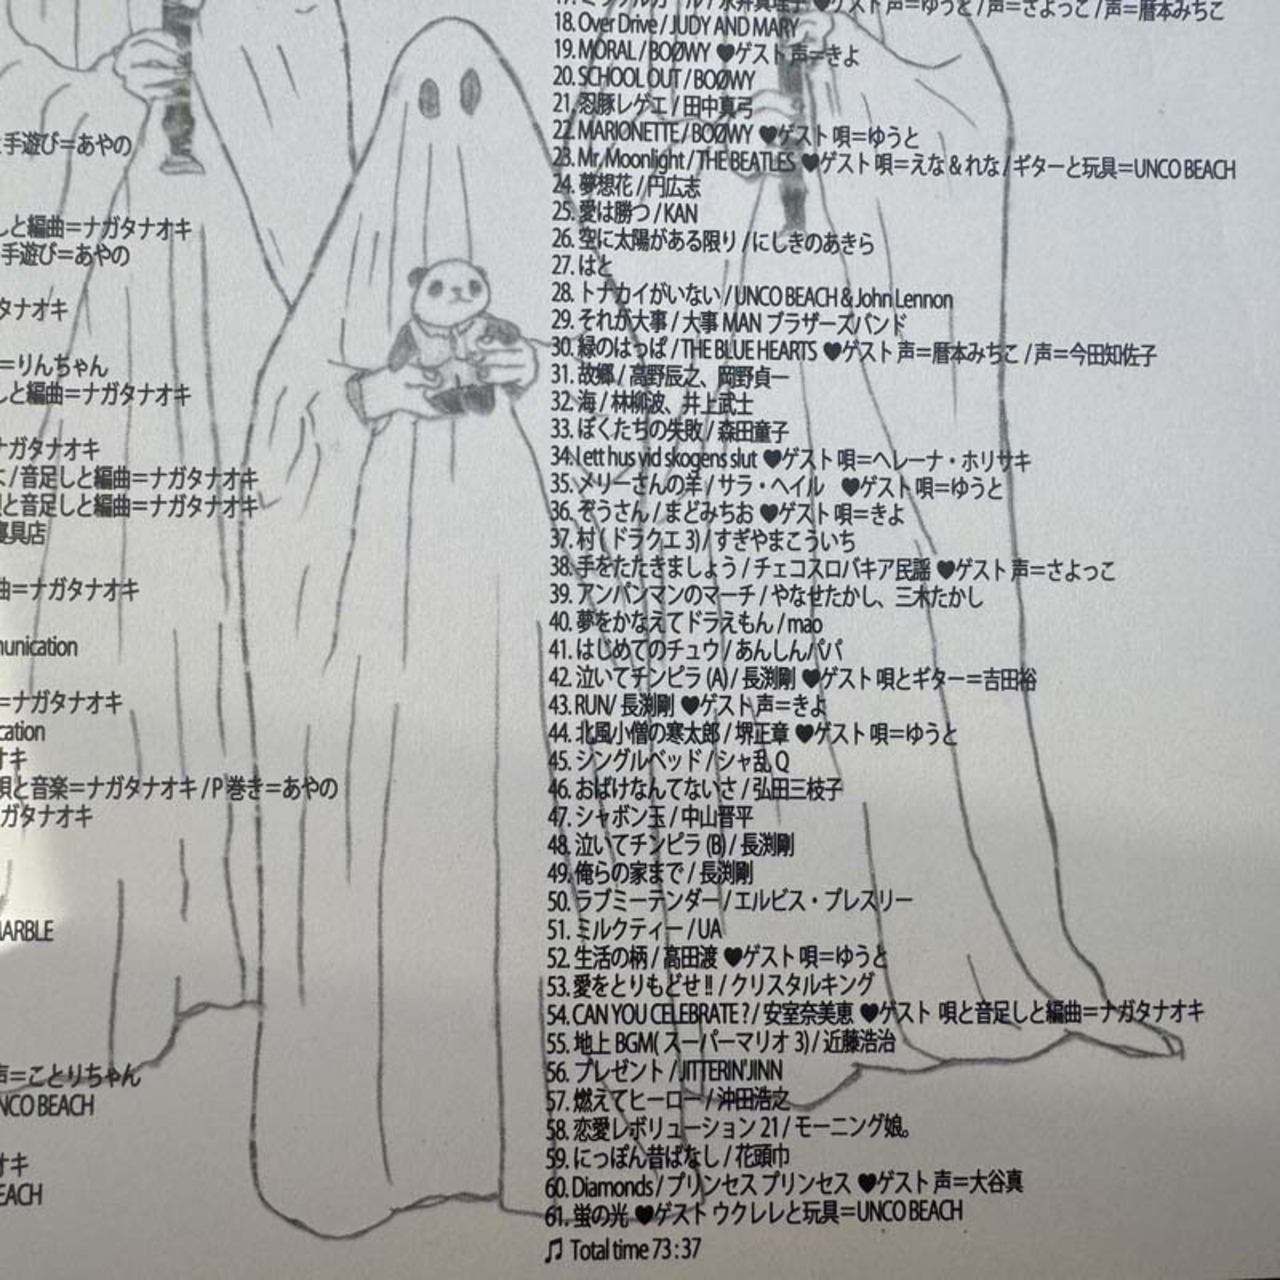 手遊び=あやの
しと編曲=ナガタナオキ
手遊び=あやの
タナオキ
=りんちゃん
しと編曲=ナガタナオキ
ナガタナオキ
/音足しと編曲=ナガタナオキ
と音足しと編曲=ナガタナオキ
寝具店
曲=ナガタナオキ
munication
=ナガタナオキ
cation
オキ
唄と音楽=ナガタナオキ/P巻き=あやの
ガタナオキ
MARBLE
声=ことりちゃん
UNCO BEACH
オキ
BEACH
ゲスト声=ゆうと/声=さよっこ/声=暦本みちこ
18. Over Drive / JUDY AND MARY
19. MORAL / BOØWY ♥ゲスト 声=きよ
20. SCHOOL OUT / BOØWY
21. 忍豚レゲエ / 田中真弓
22. MARIONETTE / BOØWY ♥ゲスト 唄=ゆうと
23. Mr. Moonlight / THE BEATLES ♥ゲスト 唄=えな & れな / ギターと玩具=UNCO BEACH
24. 夢想花 / 円広志
25. 愛は勝つ / KAN
26. 空に太陽がある限り / にしきのあきら
27. はと
28. トナカイがいない / UNCO BEACH & John Lennon
29. それが大事 / 大事 MAN ブラザーズバンド
30. 緑のはっぱ / THE BLUE HEARTS ♥ゲスト 声=暦本みちこ / 声=今田知佐子
31. 故郷 / 高野辰之、岡野貞一
32. 海 / 林柳波、井上武士
33. ぼくたちの失敗 / 森田童子
34. I ett hus vid skogens slut ♥ゲスト 唄=ヘレーナ・ホリサキ
35. メリーさんの羊 / サラ・ヘイル ♥ゲスト 唄=ゆうと
36. ぞうさん / まどみちお ♥ゲスト 唄=きよ
37. 村 ( ドラクエ 3) / すぎやまこういち
38. 手をたたきましょう / チェコスロバキア民謡 ♥ゲスト 声=さよっこ
39. アンパンマンのマーチ / やなせたかし、三木たかし
40. 夢をかなえてドラえもん / mao
41. はじめてのチュウ / あんしんパパ
42. 泣いてチンピラ (A) / 長渕剛 ♥ゲスト 唄とギター=吉田裕
43. RUN/ 長渕剛 ♥ゲスト 声=きよ
44. 北風小僧の寒太郎 / 堺正章 ♥ゲスト 唄=ゆうと
45. シングルベッド / シャ乱 Q
46. おばけなんてないさ / 弘田三枝子
47. シャボン玉 / 中山晋平
48. 泣いてチンピラ (B) / 長渕剛
49. 俺らの家まで / 長渕剛
50. ラブミーテンダー / エルビス・プレスリー
51. ミルクティー / UA
52. 生活の柄 / 高田渡 ♥ゲスト 唄=ゆうと
53. 愛をとりもどせ !! / クリスタルキング
54. CAN YOU CELEBRATE ? / 安室奈美恵 ♥ゲスト 唄と音足しと編曲=ナガタナオキ
55. 地上 BGM( スーパーマリオ 3) / 近藤浩治
56. プレゼント / JITTERIN'JINN
57. 燃えてヒーロー / 沖田浩之
58. 恋愛レボリューション 21 / モーニング娘。
59. にっぽん昔ばなし / 花頭巾
60. Diamonds / プリンセス プリンセス ♥ゲスト 声=大谷真
61. 蛍の光 ♥ゲスト ウクレレと玩具=UNCO BEACH
♫ Total time 73 : 37